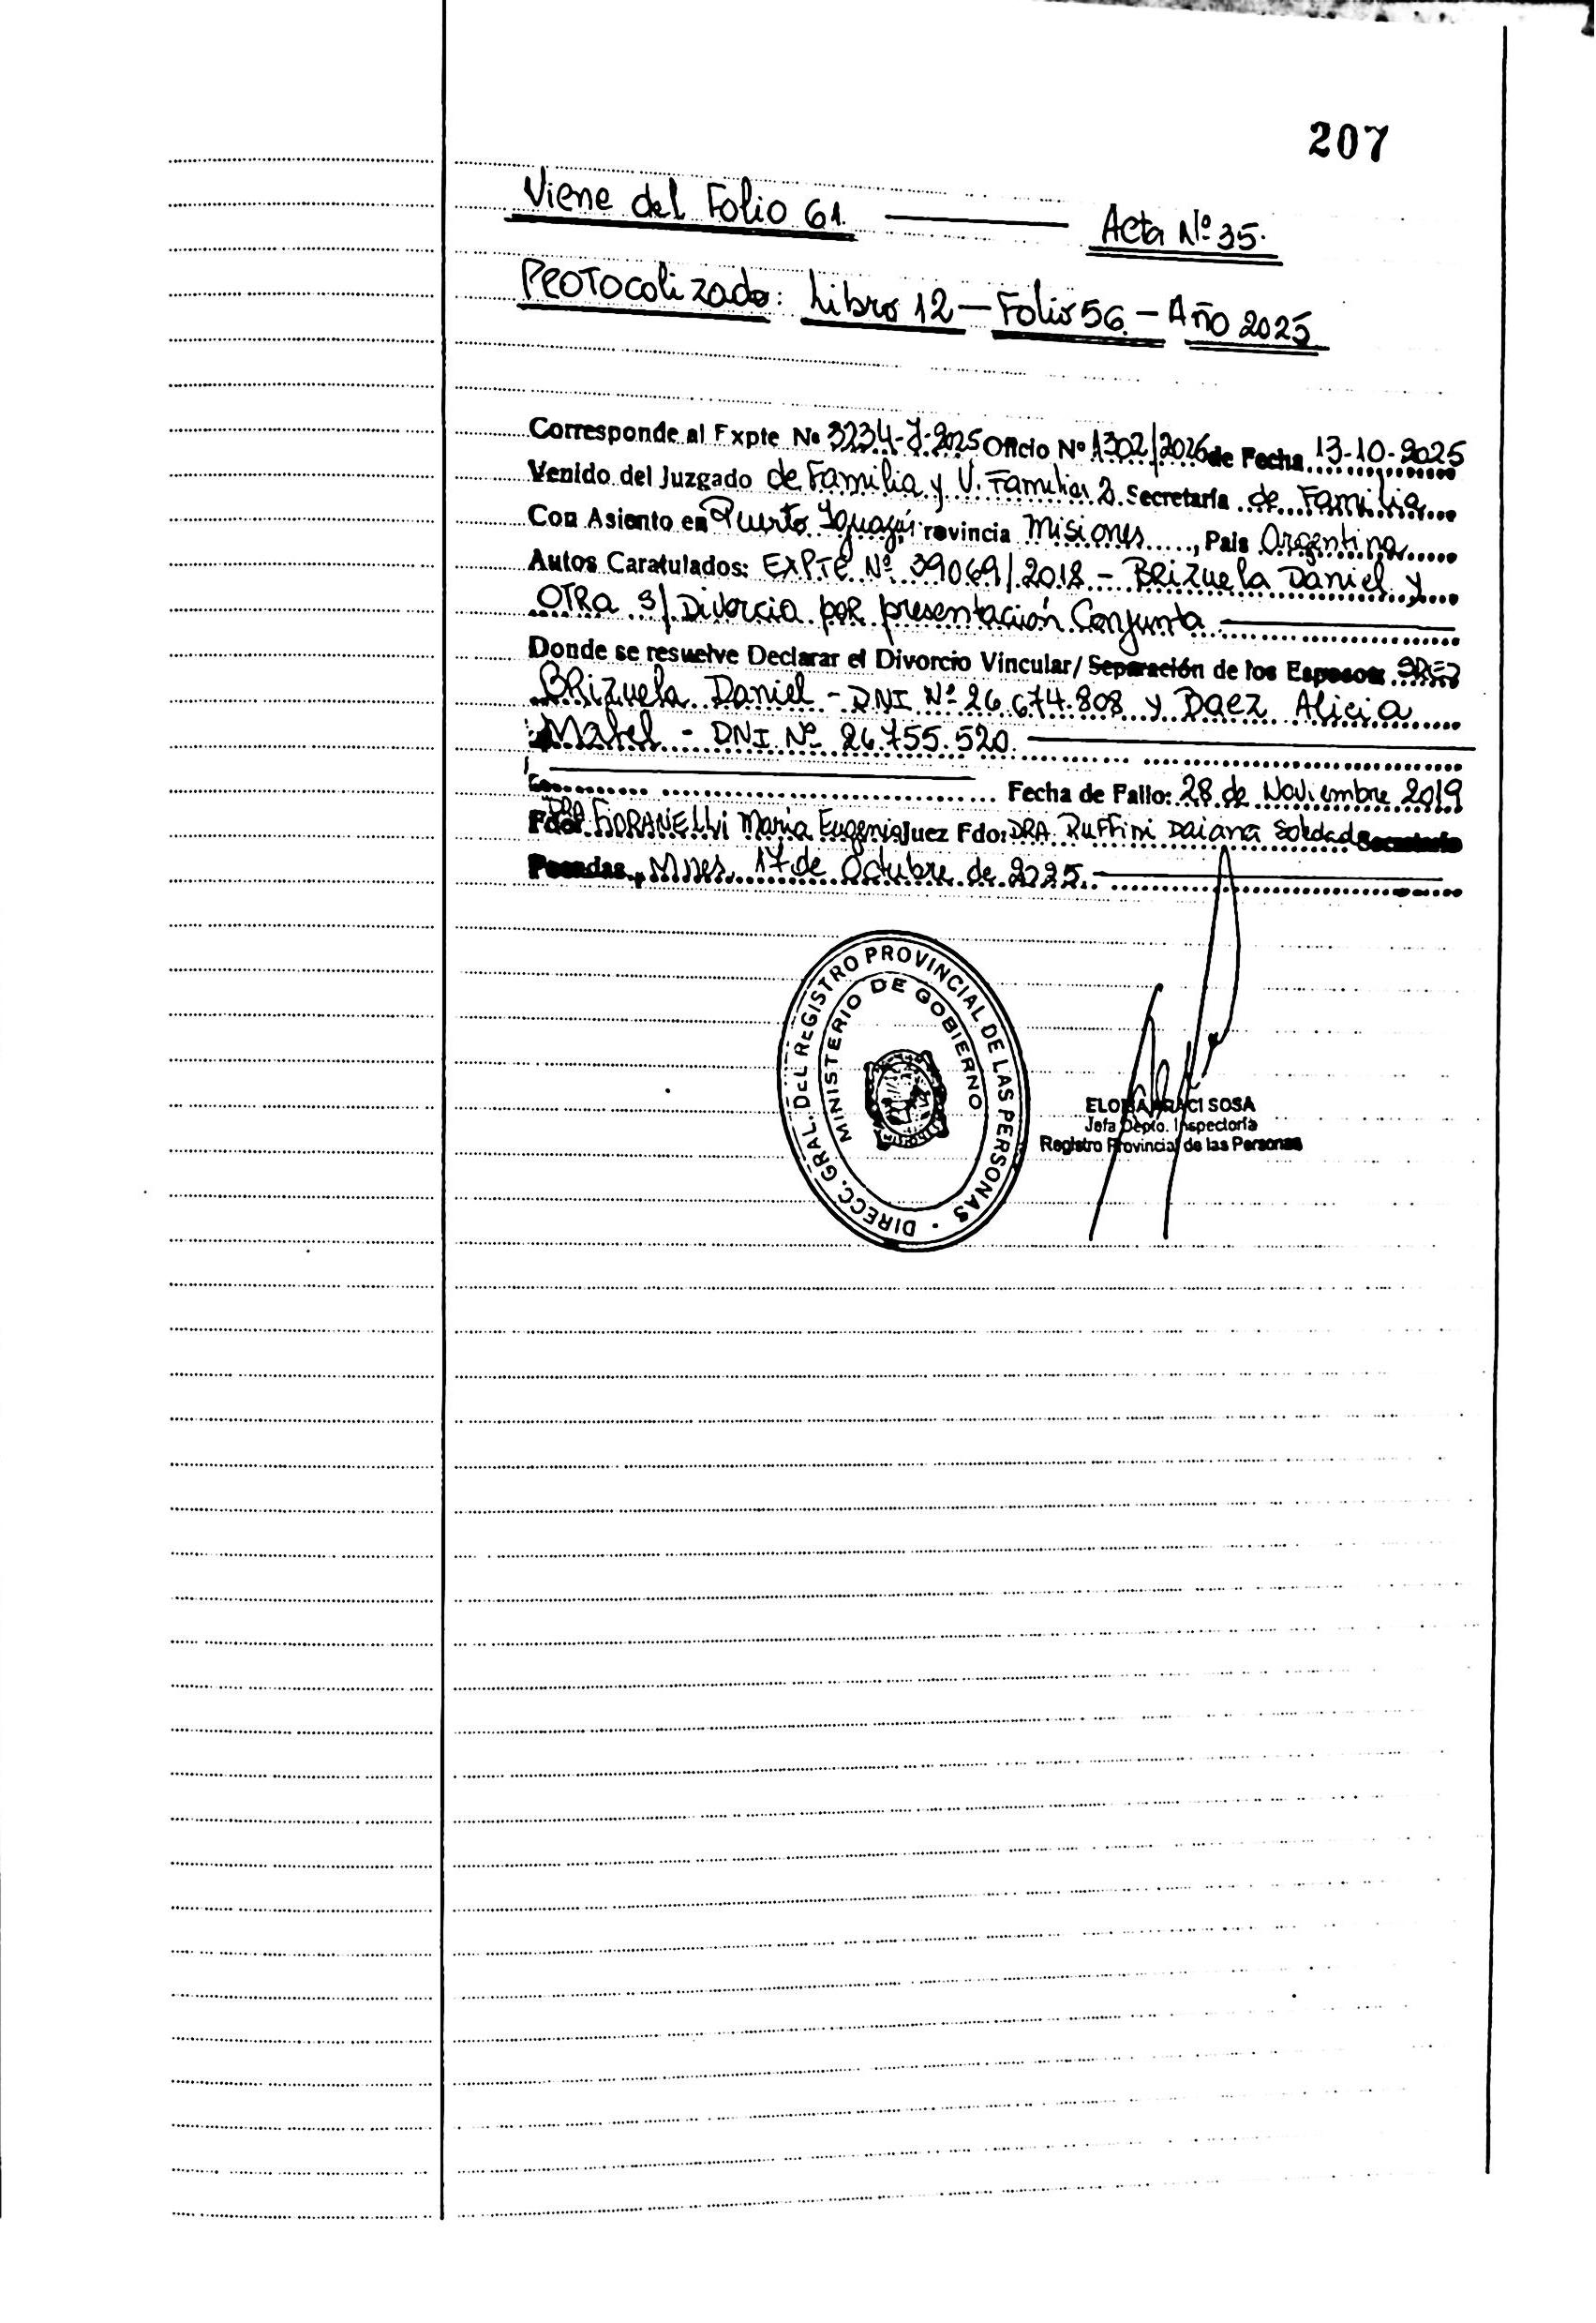 207
Viene del Folio 61. Acta Nº 35.
Protocolizado: Libro 12 — Folio 56. — Año 2025
Corresponde al Expte Nº 3234-J-2025 Oficio Nº 1302/2026 de Fecha 13-10-2025
Venido del Juzgado de Familia y V. Familiar 2. Secretaría de Familia
Con Asiento en Puerto Iguazú Provincia Misiones, Pais Argentina
Autos Caratulados: EXPTE Nº 39069/2018 - BRizuela Daniel y
OTRA S/ Divorcio por presentación Conjunta
Donde se resuelve Declarar el Divorcio Vincular/ Separación de los Esposos: SRES
BRizuela Daniel - DNI Nº 26.674.808 y Baez Alicia
Mabel - DNI Nº 26.755.520.
Fecha de Fallo: 28 de Noviembre 2019
Fdo: DRA FIORANELLI María Eugenia Juez Fdo: DRA. Ruffini Daiana Soledad Secretario
Posadas, Mnes, 17 de Octubre de 2025.
DIRECC. GRAL. DEL REGISTRO PROVINCIAL DE LAS PERSONAS
MINISTERIO DE GOBIERNO
ARACI SOSA
Jefa Depto. Inspectoría
Registro Provincial de las Personas